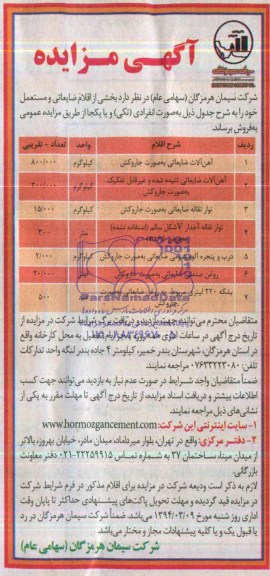 آگهی مزایده
شرکت سیمان هرمزگان (سهامی عام) در نظر دارد بخشی از اقلام ضایعاتی و مستعمل
خود را به شرح جدول ذیل به‌صورت انفرادی (تکی) و یا یکجا از طریق مزایده عمومی
به‌فروش برساند.
ردیف شرح اقلام واحد تعداد - تقریبی
۱ آهن‌آلات ضایعاتی به‌صورت جاروکش کیلوگرم ۸۰۰/۰۰۰
۲ آهن‌آلات ضایعاتی تنیده شده و غیرقابل تفکیک به‌صورت جاروکش کیلوگرم ۳۰۰/۰۰۰
۳ نوار نقاله ضایعاتی به‌صورت جاروکش کیلوگرم ۱۵/۰۰۰
۴ نوار نقاله آجدار ۷شکل سالم (استفاده نشده) متر ۳۰۰
۵ درب و پنجره آلومینیومی ضایعاتی به‌صورت جاروکش کیلوگرم ۲/۰۰۰
۶ روغن صنعتی ضایعاتی به‌صورت جاروکش ۲۰/۰۰۰
۷ بشکه ۲۲۰ لیتری ضایعاتی به‌صورت جاروکش ۵۰۰
ParsNamadData
متقاضیان محترم می‌توانند جهت بازدید و دریافت برگ شرایط شرکت در مزایده از
تاریخ درج آگهی در ساعات اداری به محل کارخانه واقع
در استان هرمزگان، شهرستان بندر خمیر، کیلومتر ۴ جاده بندر لنگه واحد تدارکات
تلفن: ۰۷۶۳۳۲۲۳۰۸۰ مراجعه نمایند.
ضمناً متقاضیان واجد شرایط در صورت عدم نیاز به بازدید می‌توانند جهت کسب
اطلاعات بیشتر و دریافت اسناد مزایده، از تاریخ درج آگهی تا مهلت مقرر به یکی از
نشانی‌های ذیل مراجعه نمایند.
۱- سایت اینترنتی این شرکت: www.hormozgancement.com
۲- دفتر مرکزی: واقع در تهران، بلوار میرداماد، میدان مادر، خیابان بهروز، بالاتر
از میدان مینا، ساختمان ۳۷ به شماره تماس ۲۲۲۵۹۹۱۵-۰۲۱ دفتر معاونت
بازرگانی.
لازم به ذکر است ودیعه شرکت در مزایده برای اقلام مذکور در فرم شرایط شرکت
در مزایده قید گردیده و مهلت تحویل پاکت‌های پیشنهادی حداکثر تا پایان وقت
اداری روز شنبه مورخ ۱۳۹۴/۰۳/۰۹ می‌باشد. ضمناً شرکت سیمان هرمزگان در رد
یا قبول یک و یا کلیه پیشنهادات مجاز و مختار می‌باشد.
شرکت سیمان هرمزگان (سهامی عام)